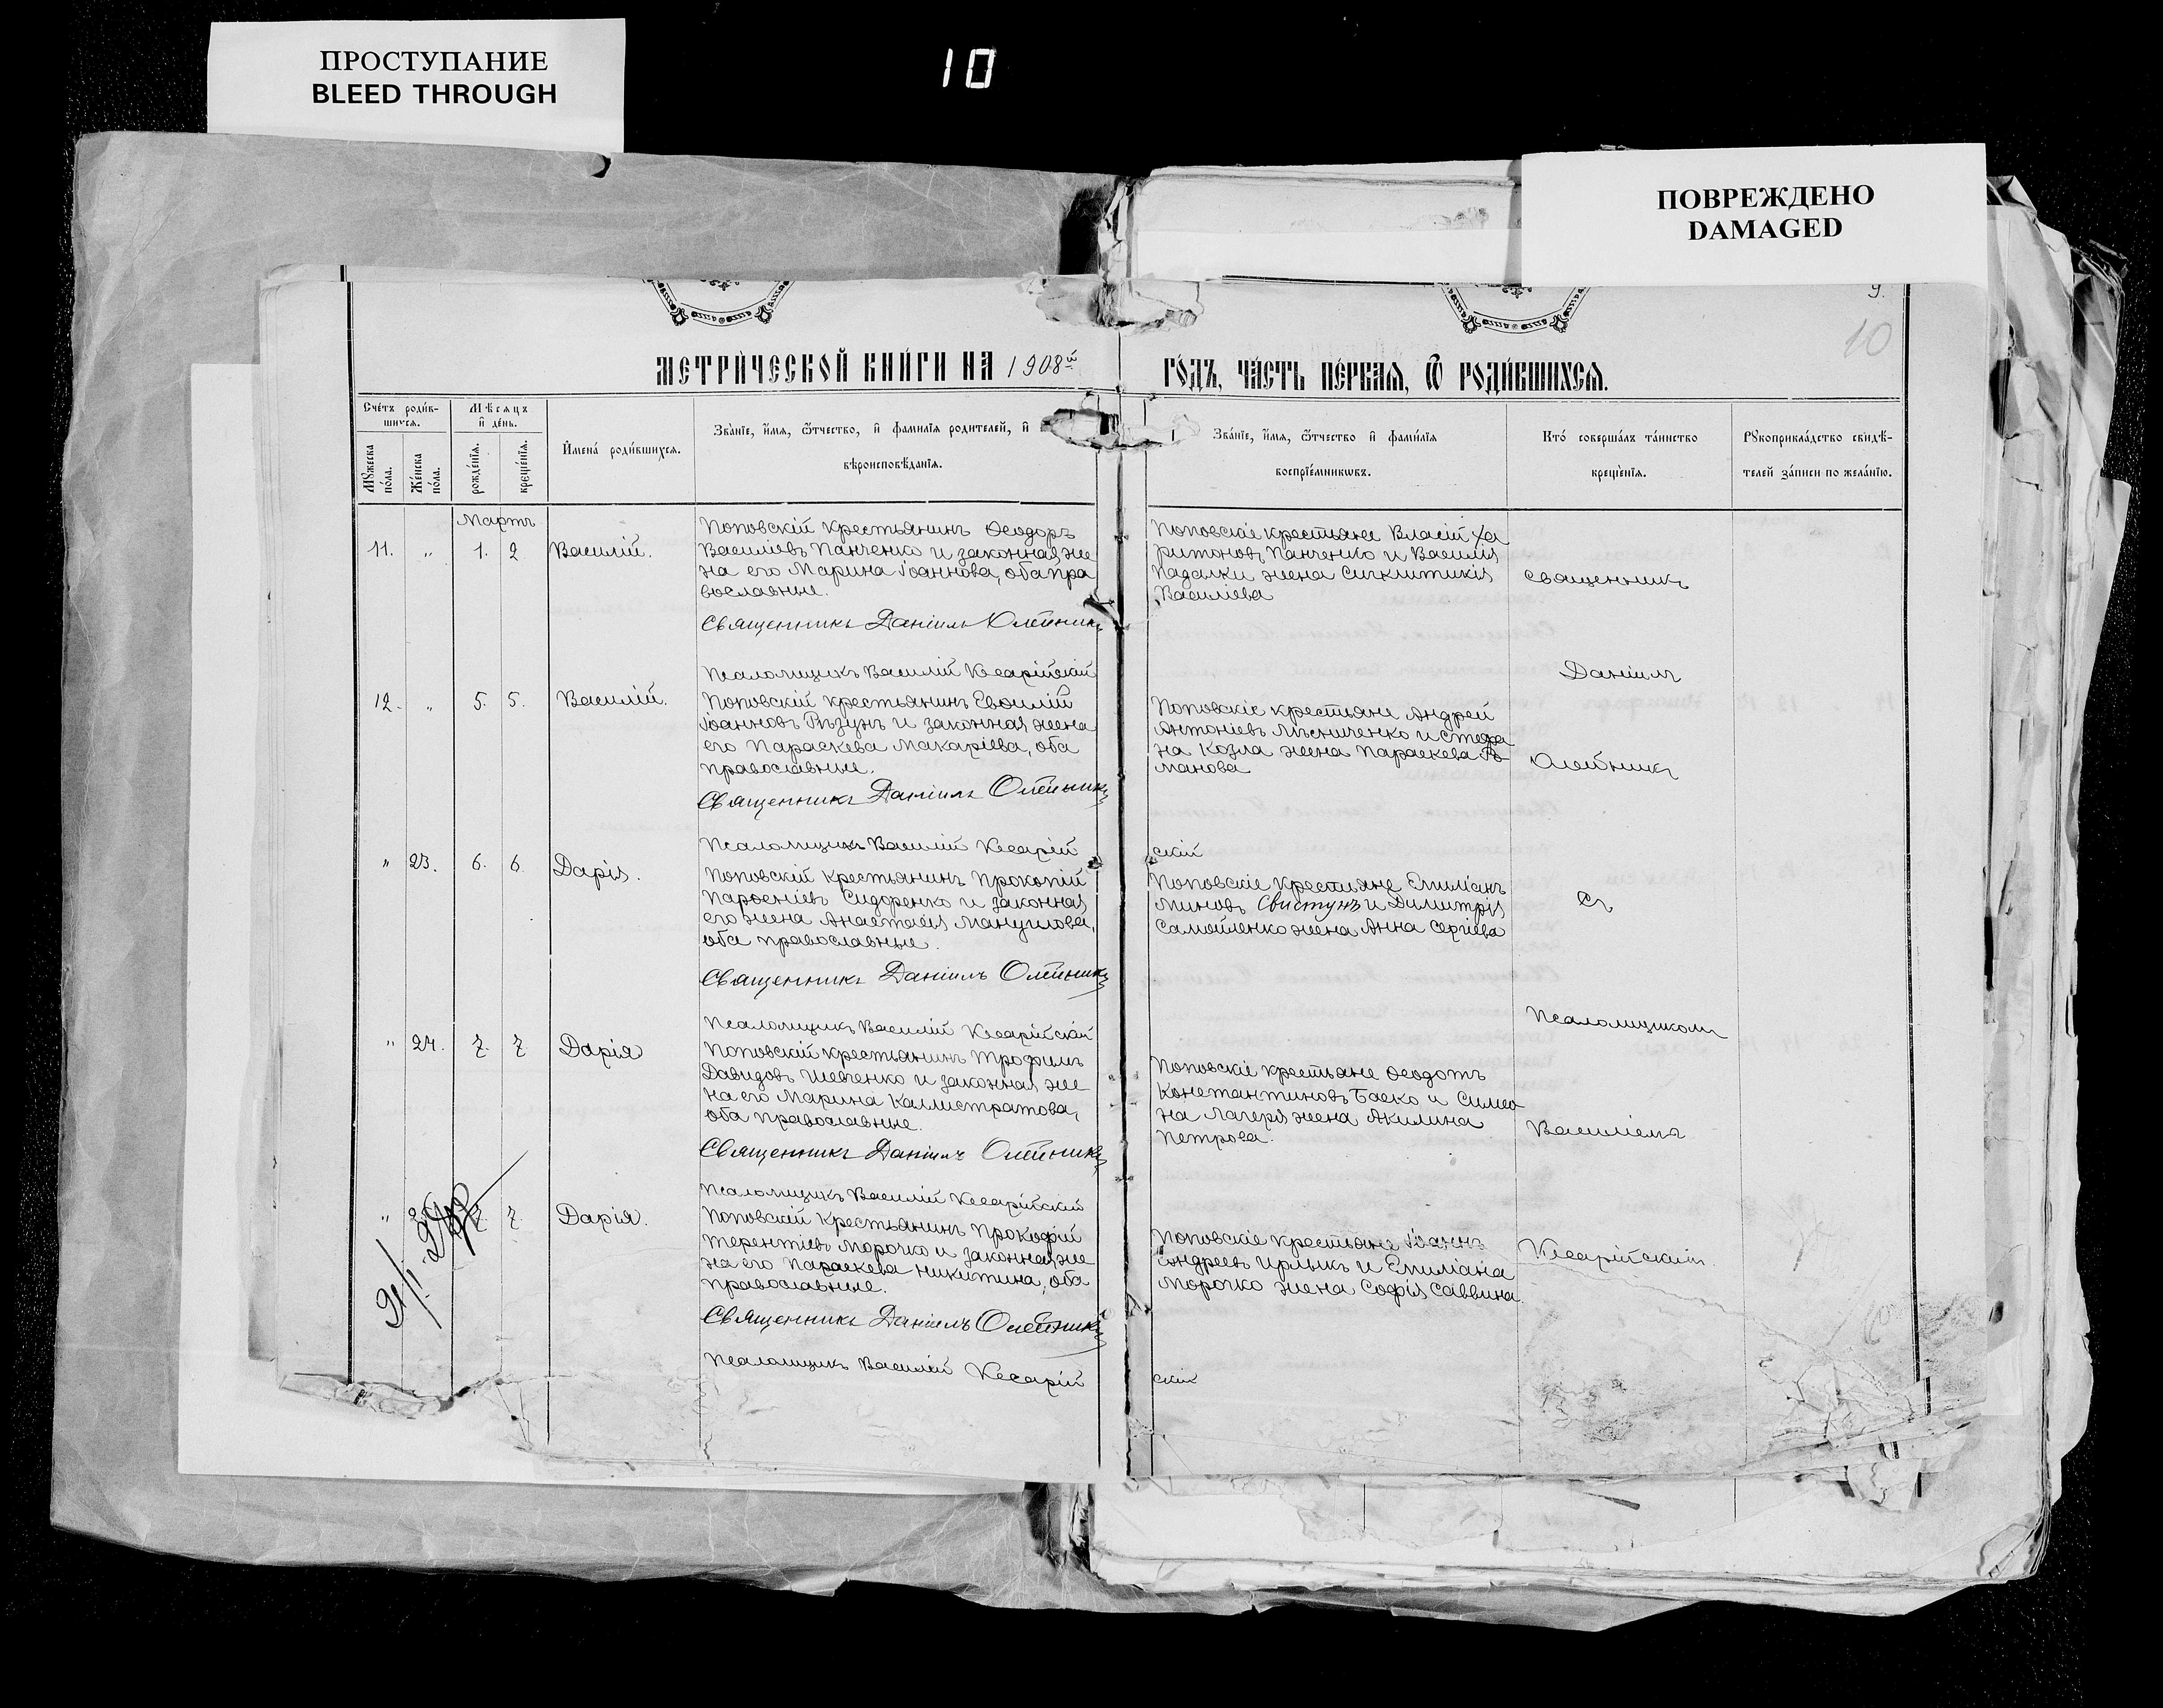 ПРОСТУПАНИЕ
BLEED THROUGH
10
ПОВРЕЖДЕНО
DAMAGED
9.
10
МЕТРИ́ЧЕСКОЙ КНИ́ГИ НА 1908й
ГО́ДЪ, ЧА́СТЬ ПЕ́РВАЯ, Ѡ РОДИ́ВШИХСЯ.
Сче́тъ роди́в-
шихся.
Мѣ́сяцъ
и҆ де́нь.
Мꙋ́жеска по́ла.
Же́нска по́ла.
рожде́нїя.
креще́нїя.
И҆мена̀ роди́вшихся.
Зва́нїе, и҆́мя, ѻ҆́тчество, и҆ фамилїя родителей, и҆
вѣроисповѣ́данїя.
Зва́нїе, и҆́мя, ѻ҆́тчество и҆ фами́лїя
воспрїе́мникѡвъ.
Кто̀ соверша́лъ та́инство
креще́нїя.
Рꙋкоприкла́дство свидѣ́-
телей за́писи по жела́нїю.
Мартъ
11. " 1. 2 Василій.
Поповскій крестьянинъ Ѳеодоръ
Василіевъ Панченко и законная же
на его Марина Іоаннова, оба пра
вославные.
Священникъ Даніилъ Олейникъ
Псаломщикъ Василій Кесарійскій
Поповскіе крестьяне Власій Ха
ритоновъ Панченко и Василія
Падалки жена Сигклитикія
Василіева
Священникъ
Даніилъ
12. " 5. 5. Василій.
Поповскій крестьянинъ Евѳимій
Іоанновъ Рѣзунъ и законная жена
его Параскева Макаріева, оба
православные.
Священникъ Даніилъ Олейникъ
Псаломщикъ Василій Кесарій
скій
Поповскіе крестьяне Андрей
Антоніевъ Мѣсниченко и Стефа
на Козла жена Параскева Ро
манова
Олейникъ
" 23. 6. 6. Дарія.
Поповскій крестьянинъ Прокопій
Парѳеніевъ Сидоренко и законная
его жена Анастасія Мануилова,
оба православные.
Священникъ Даніилъ Олейникъ
Псаломщикъ Василій Кесарійскій
Поповскіе крестьяне Емиліанъ
Миновъ Свистунъ и Димитрія
Самойленко жена Анна Сергіева
Съ
Псаломщикомъ
" 24. 7. 7 Дарія
Поповскій крестьянинъ Трофимъ
Давидовъ Шевченко и законная же
на его Марина Каллистратова,
оба православные.
Священникъ Даніилъ Олейникъ
Псаломщикъ Василій Кесарійскій
Поповскіе крестьяне Ѳеодотъ
Константиновъ Баско и Симео
на Лагеря жена Акилина
Петрова.
Василіемъ
" 7. 7. Дарія.
Поповскій крестьянинъ Прокофій
Терентіевъ Морочко и законная же
на его Параскева Никитина, оба
православные.
Священникъ Даніилъ Олейникъ
Псаломщикъ Василій Кесарій
скій
Поповскіе крестьяне Іоаннъ
Андреевъ Ирлыкъ и Емиліана
Морочко жена Софія Саввина.
Кесарійскимъ